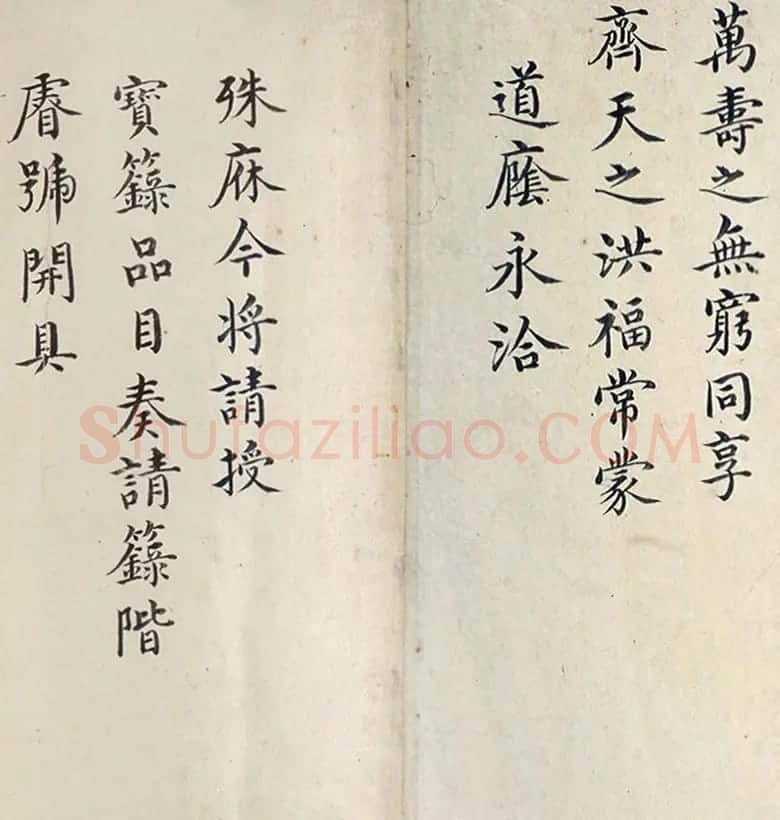 萬壽之無窮同享
齊天之洪福常蒙
道廕永洽
殊庥今將請授
寶籙品目奏請籙階
睿號開具
Shufaziliao.COM